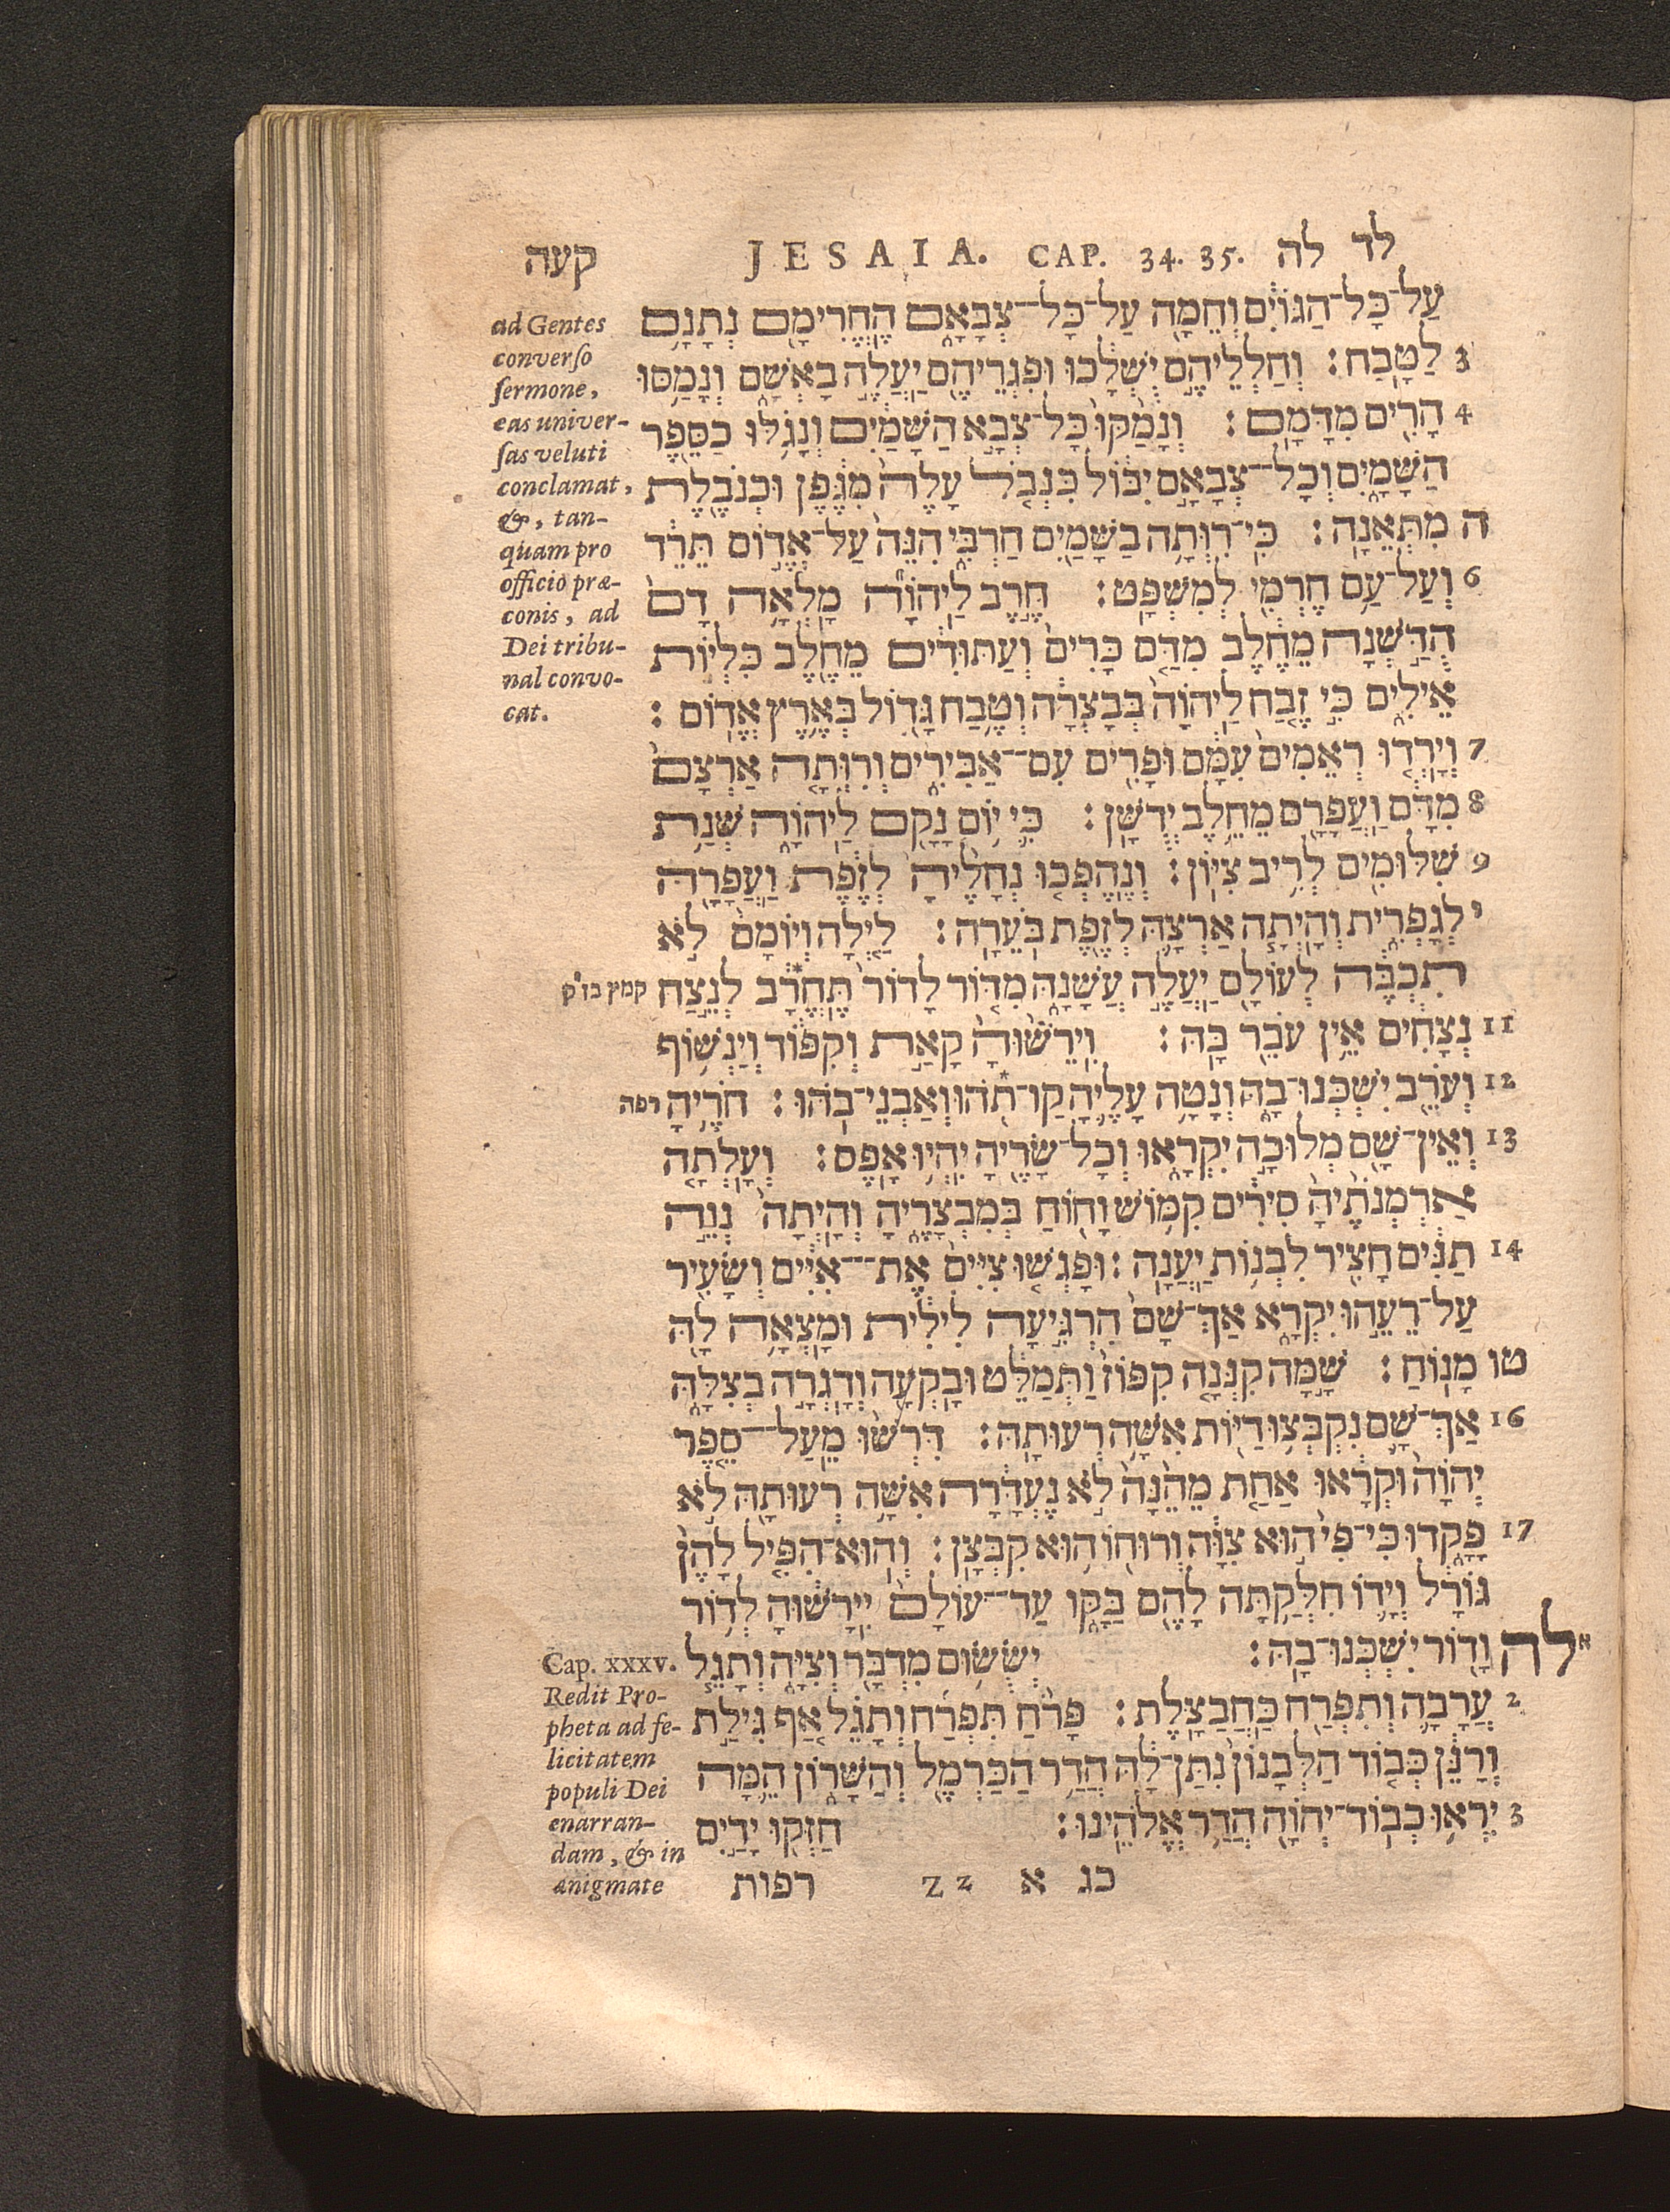 לד לה JESAIA. CAP. 34. 35. קעה
עַל־כָּל־הַגּוֹיִם וְחֵמָה עַל־כָּל־צְבָאָם הֶחֱרִימָם נְתָנָם
3 לַטָּבַח׃ וְחַלְלֵיהֶם יֻשְׁלָכוּ וּפִגְרֵיהֶם יַעֲלֶה בָאְשָׁם וְנָמַסּוּ
4 הָרִים מִדָּמָם׃ וְנָמַקּוּ כָּל־צְבָא הַשָּׁמַיִם וְנָגֹלּוּ כַסֵּפֶר
הַשָּׁמָיִם וְכָל־צְבָאָם יִבּוֹל כִּנְבֹל עָלֶה מִגֶּפֶן וּכְנֹבֶלֶת
ה מִתְּאֵנָה׃ כִּי־רִוְּתָה בַשָּׁמַיִם חַרְבִּי הִנֵּה עַל־אֱדוֹם תֵּרֵד
6 וְעַל־עַם חֶרְמִי לְמִשְׁפָּט׃ חֶרֶב לַיהוָה מָלְאָה דָם
הֻדַּשְׁנָה מֵחֶלֶב מִדַּם כָּרִים וְעַתּוּדִים מֵחֵלֶב כִּלְיוֹת
אֵילִים כִּי זֶבַח לַיהוָה בְּבָצְרָה וְטֶבַח גָּדוֹל בְּאֶרֶץ אֱדוֹם׃
7 וְיָרְדוּ רְאֵמִים עִמָּם וּפָרִים עִם־אַבִּירִים וְרִוְּתָה אַרְצָם
8 מִדָּם וַעֲפָרָם מֵחֵלֶב יְדֻשָּׁן׃ כִּי יוֹם נָקָם לַיהוָה שְׁנַת
9 שִׁלּוּמִים לְרִיב צִיּוֹן׃ וְנֶהֶפְכוּ נְחָלֶיהָ לְזֶפֶת וַעֲפָרָהּ
י לְגָפְרִית וְהָיְתָה אַרְצָהּ לְזֶפֶת בֹּעֵרָה׃ לַיְלָה וְיוֹמָם לֹא
תִכְבֶּה לְעוֹלָם יַעֲלֶה עֲשָׁנָהּ מִדּוֹר לָדוֹר תֶּחֱרָב* לְנֵצַח קמץ בז״ק
11 נְצָחִים אֵין עֹבֵר בָּהּ׃ וִירֵשׁוּהָ קָאַת וְקִפּוֹד וְיַנְשׁוֹף
12 וְעֹרֵב יִשְׁכְּנוּ־בָהּ וְנָטָה עָלֶיהָ* קַו־תֹהוּ וְאַבְנֵי־בֹהוּ׃ חֹרֶיהָ רפה
13 וְאֵין־שָׁם מְלוּכָה יִקְרָאוּ וְכָל־שָׂרֶיהָ יִהְיוּ אָפֶס׃ וְעָלְתָה
אַרְמְנֹתֶיהָ סִירִים קִמּוֹשׂ וָחוֹחַ בְּמִבְצָרֶיהָ וְהָיְתָה נְוֵה
14 תַנִּים חָצִיר לִבְנוֹת יַעֲנָה׃ וּפָגְשׁוּ צִיִּים אֶת־אִיִּים וְשָׂעִיר
עַל־רֵעֵהוּ יִקְרָא אַךְ־שָׁם הִרְגִּיעָה לִילִית וּמָצְאָה לָהּ
טו מָנוֹחַ׃ שָׁמָּה קִנְּנָה קִפּוֹז וַתְּמַלֵּט וּבָקְעָה וְדָגְרָה בְצִלָּהּ
16 אַךְ־שָׁם נִקְבְּצוּ דַיּוֹת אִשָּׁה רְעוּתָהּ׃ דִּרְשׁוּ מֵעַל־סֵפֶר
יְהוָה וּקְרָאוּ אַחַת מֵהֵנָּה לֹא נֶעְדָּרָה אִשָּׁה רְעוּתָהּ לֹא
17 פָקָדוּ כִּי־פִי הוּא צִוָּה וְרוּחוֹ הוּא קִבְּצָן׃ וְהוּא־הִפִּיל לָהֶן
גּוֹרָל וְיָדוֹ חִלְּקַתָּה לָהֶם בַּקָּו עַד־עוֹלָם יִירָשׁוּהָ לְדוֹר
א לה וָדוֹר יִשְׁכְּנוּ־בָהּ׃ יְשֻׂשׂוּם מִדְבָּר וְצִיָּה וְתָגֵל
2 עֲרָבָה וְתִפְרַח כַּחֲבַצָּלֶת׃ פָּרֹחַ תִּפְרַח וְתָגֵל אַף גִּילַת
וְרַנֵּן כְּבוֹד הַלְּבָנוֹן נִתַּן־לָהּ הֲדַר הַכַּרְמֶל וְהַשָּׁרוֹן הֵמָּה
3 יִרְאוּ כְבוֹד־יְהוָה הֲדַר אֱלֹהֵינוּ׃ חַזְּקוּ יָדַיִם
כג א Zz רפות
ad Gentes
converso
sermone,
eas univer-
sas veluti
conclamat,
&, tan-
quam pro
officio præ-
conis, ad
Dei tribu-
nal convo-
cat.
Cap. xxxv.
Redit Pro-
pheta ad fe-
licitatem
populi Dei
enarran-
dam, & in
ænigmate